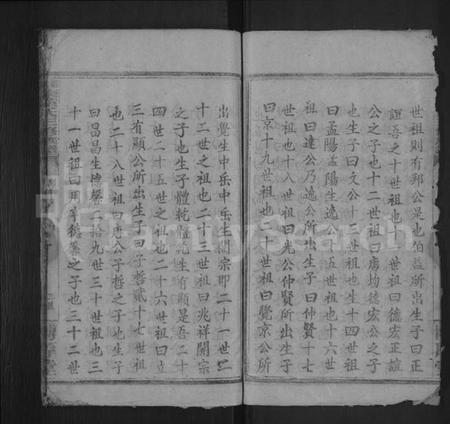 世祖則有邦公是也伯益所出生子曰正
誼吾之十世祖也十一世祖曰德宏正誼
公之子也十二世祖曰虜均德宏公之子
也生子曰文公十三世祖也生十四世祖
曰孟陽孟陽生逸公十五世祖也十六世
祖曰達公乃逸公所出生子曰仲賢十七
世祖也十八世祖曰光公仲賢所出生子
曰京十九世祖也二十世祖曰覺京公所
出覺生中岳中岳生開宗即二十一世二
十二世之祖也二十三世祖曰兆祥開宗
之子也生子體乾體乾生有顯是吾二十
四世二十五世之祖也二十六世祖曰立
三有顯公所出生子曰子哲貳十七世祖
也二十八世祖曰唐公子哲之子也生子
曰昌昌生 二十九世三十世祖也三
十一世祖曰 之子也三十二世